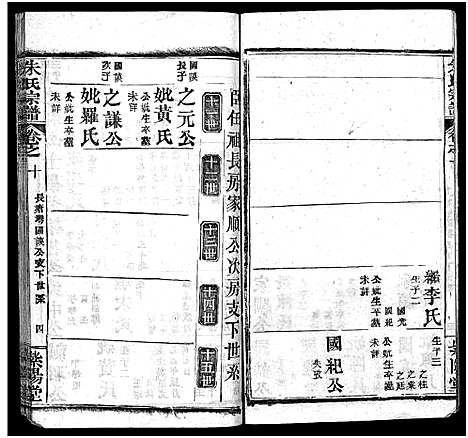 繼李氏
生子二
國光
國紀
公妣生卒墓
未詳
生子三
之柱
之廷
公妣生卒墓
未詳
國紀公
失攷
長房家順公次房支下世系
十一世
十二世
十三世
十四世
十五世
國謨
長子
之元公
妣黃氏
公妣生卒墓
未詳
國謨
次子
之謙公
妣羅氏
公妣生卒墓
未詳
朱氏宗譜
卷之十
國謨公支下世系
四
紫陽堂